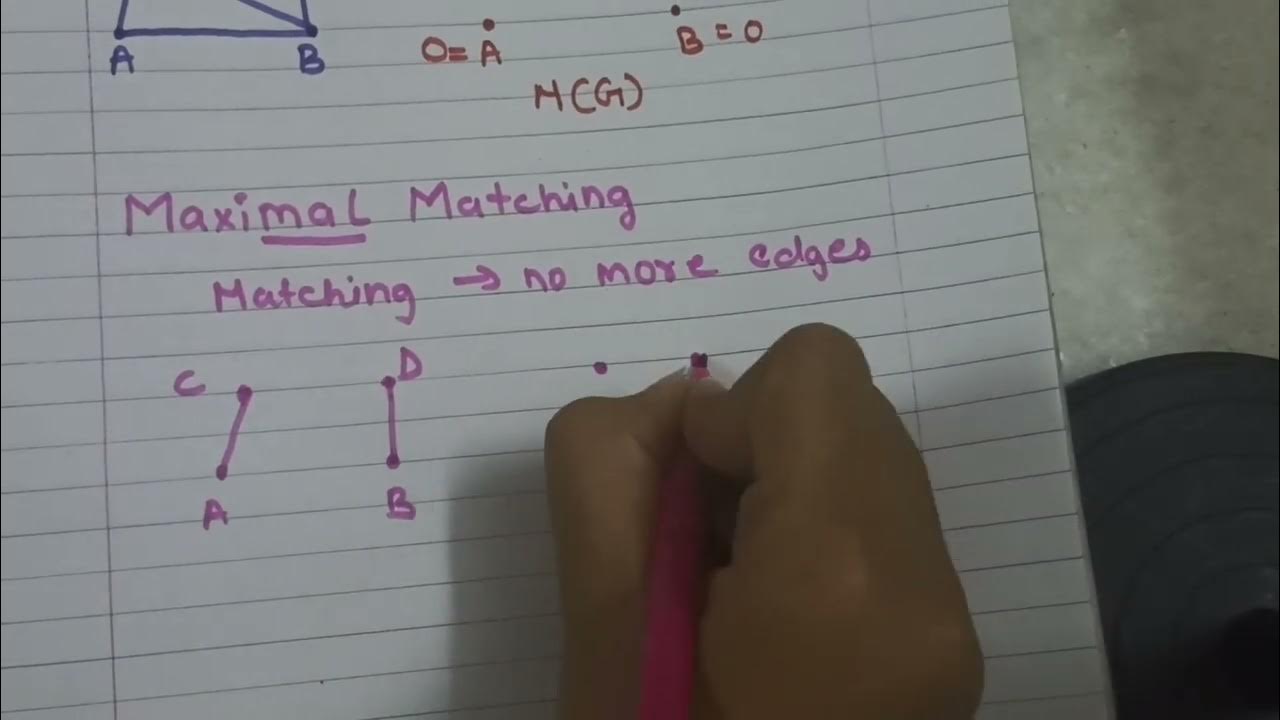 A B O= A B = O
M(G)
Maximal Matching
Matching → no more edges
C D
A B